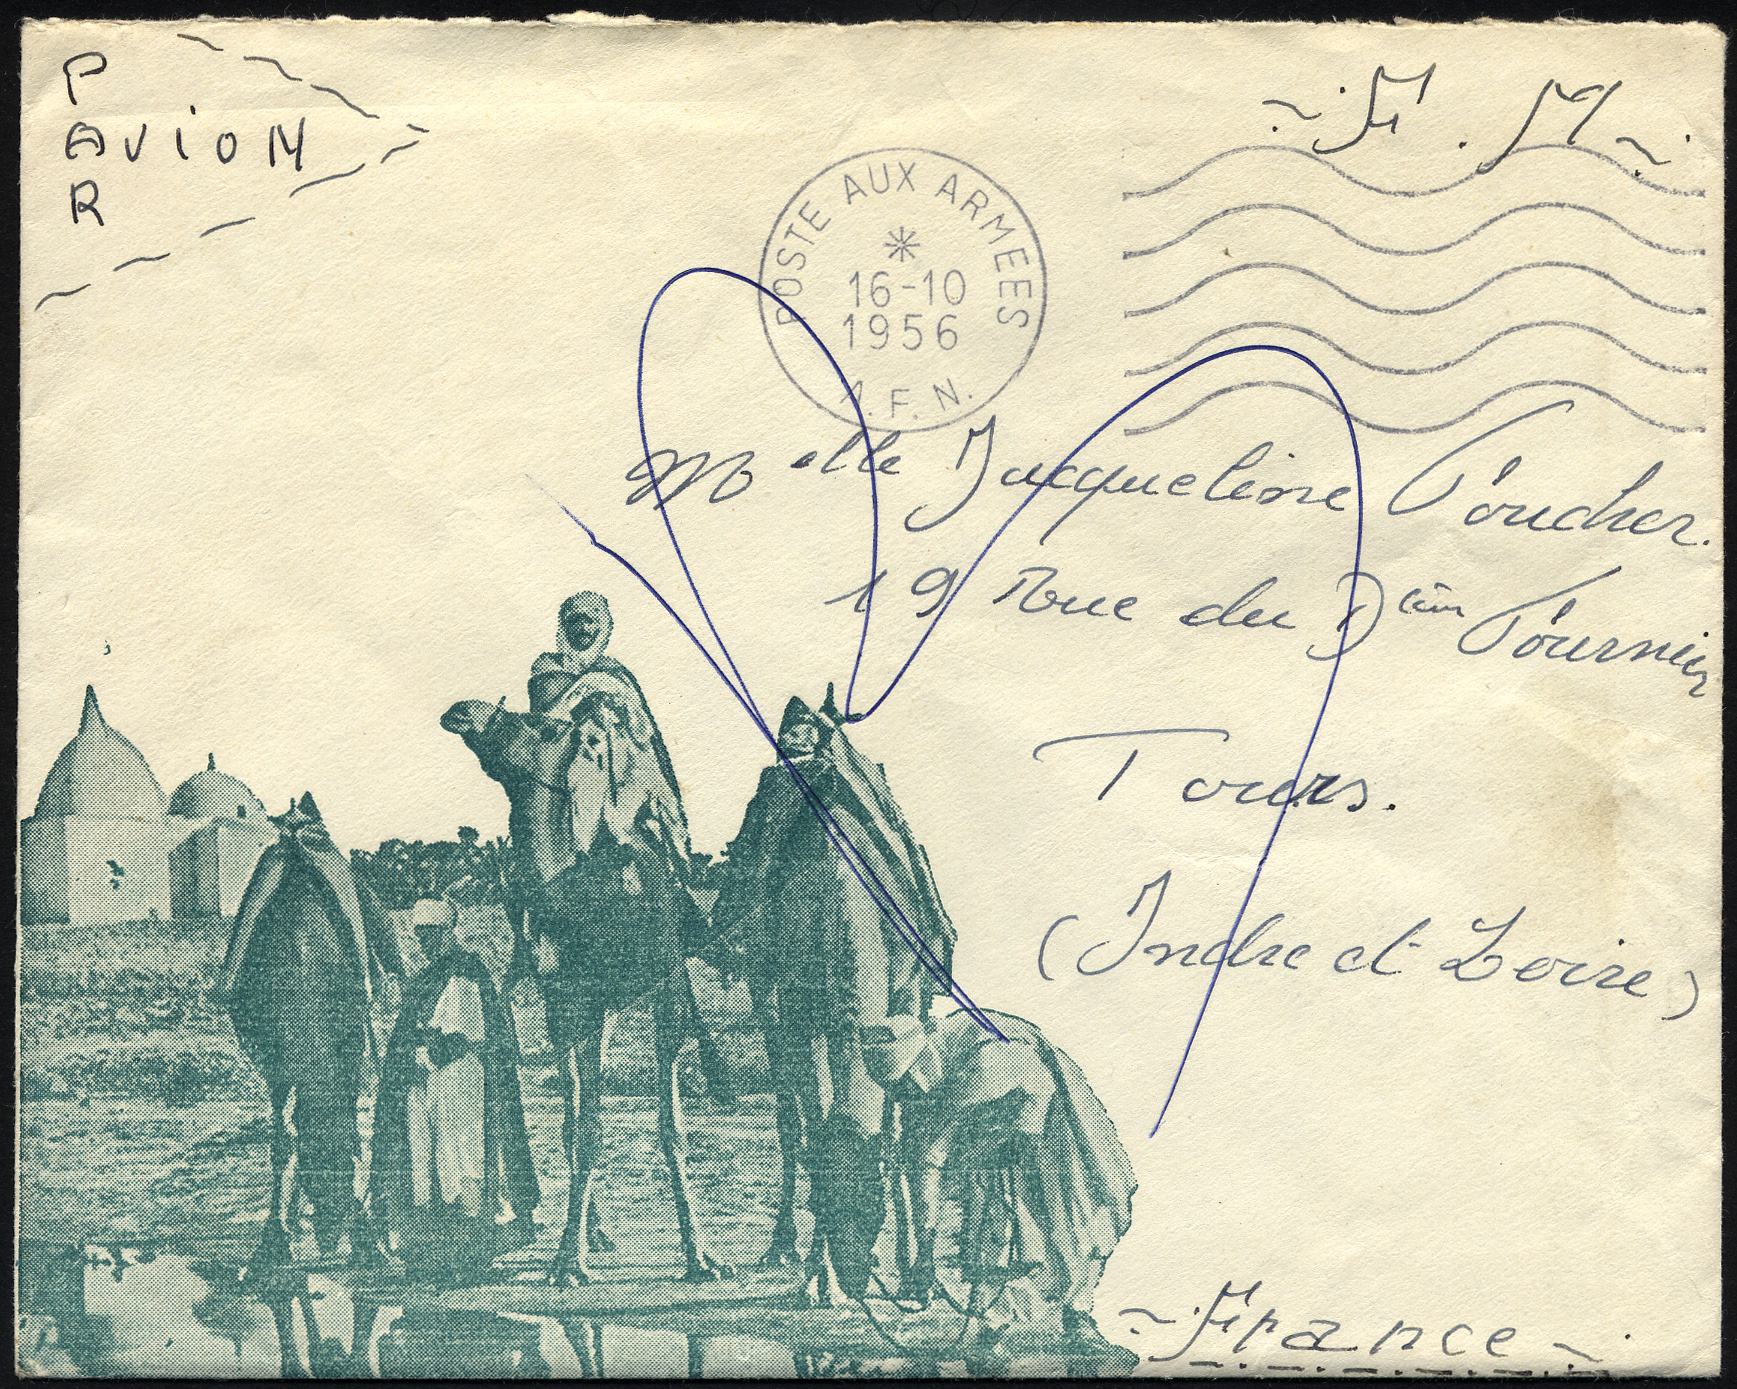 PAR
AVION
F. M
POSTE AUX ARMEES
16-10
1956
A.F.N.
Melle Jacqueline Foucher.
19 Rue du Dcteur Fournier
Tours.
(Indre et Loire)
France